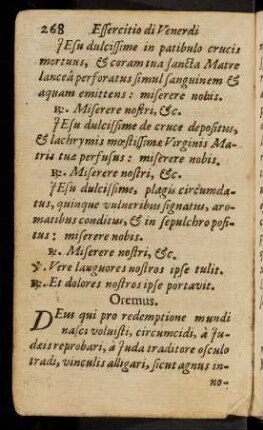 268 Essercitio di Venerdi
JEsu dulcissime in patibulo crucis
mortuus, & coram tua sancta Matre
lanceâ perforatus simul sanguinem &
aquam emittens: miserere nobis.
℞. Miserere nostri, &c.
JEsu dulcissime de cruce depositus,
& lachrymis mœstissimæ Virginis Ma-
tris tuæ perfusus: miserere nobis.
℞. Miserere nostri, &c.
JEsu dulcissime, plagis circumda-
tus, quinque vulneribus signatus, aro-
matibus conditus, & in sepulchro posi-
tus: miserere nobis.
℞. Miserere nostri, &c.
℣. Vere languores nostros ipse tulit.
℞. Et dolores nostros ipse portavit.
Oremus.
DEus qui pro redemptione mundi
nasci voluisti, circumcidi, à Ju-
dæis reprobari, à Juda traditore osculo
tradi, vinculis alligari, sicut agnus in-
no-